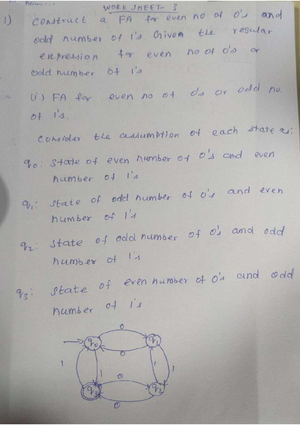 WORK SHEET- 3
1) Construct a FA for even no of 0's and
odd number of 1's Given the regular
expression for even no of 0's or
odd number of 1's
(i) FA for even no of 0's or odd no.
of 1's.
Consider the assumption of each state as:
q0: State of even number of 0's and even
number of 1's
q1: State of odd number of 0's and even
number of 1's
q2: State of odd number of 0's and odd
number of 1's
q3: State of even number of 0's and odd
number of 1's
0
q0 q1
0
1 1 1 1
0
q3 q2
0